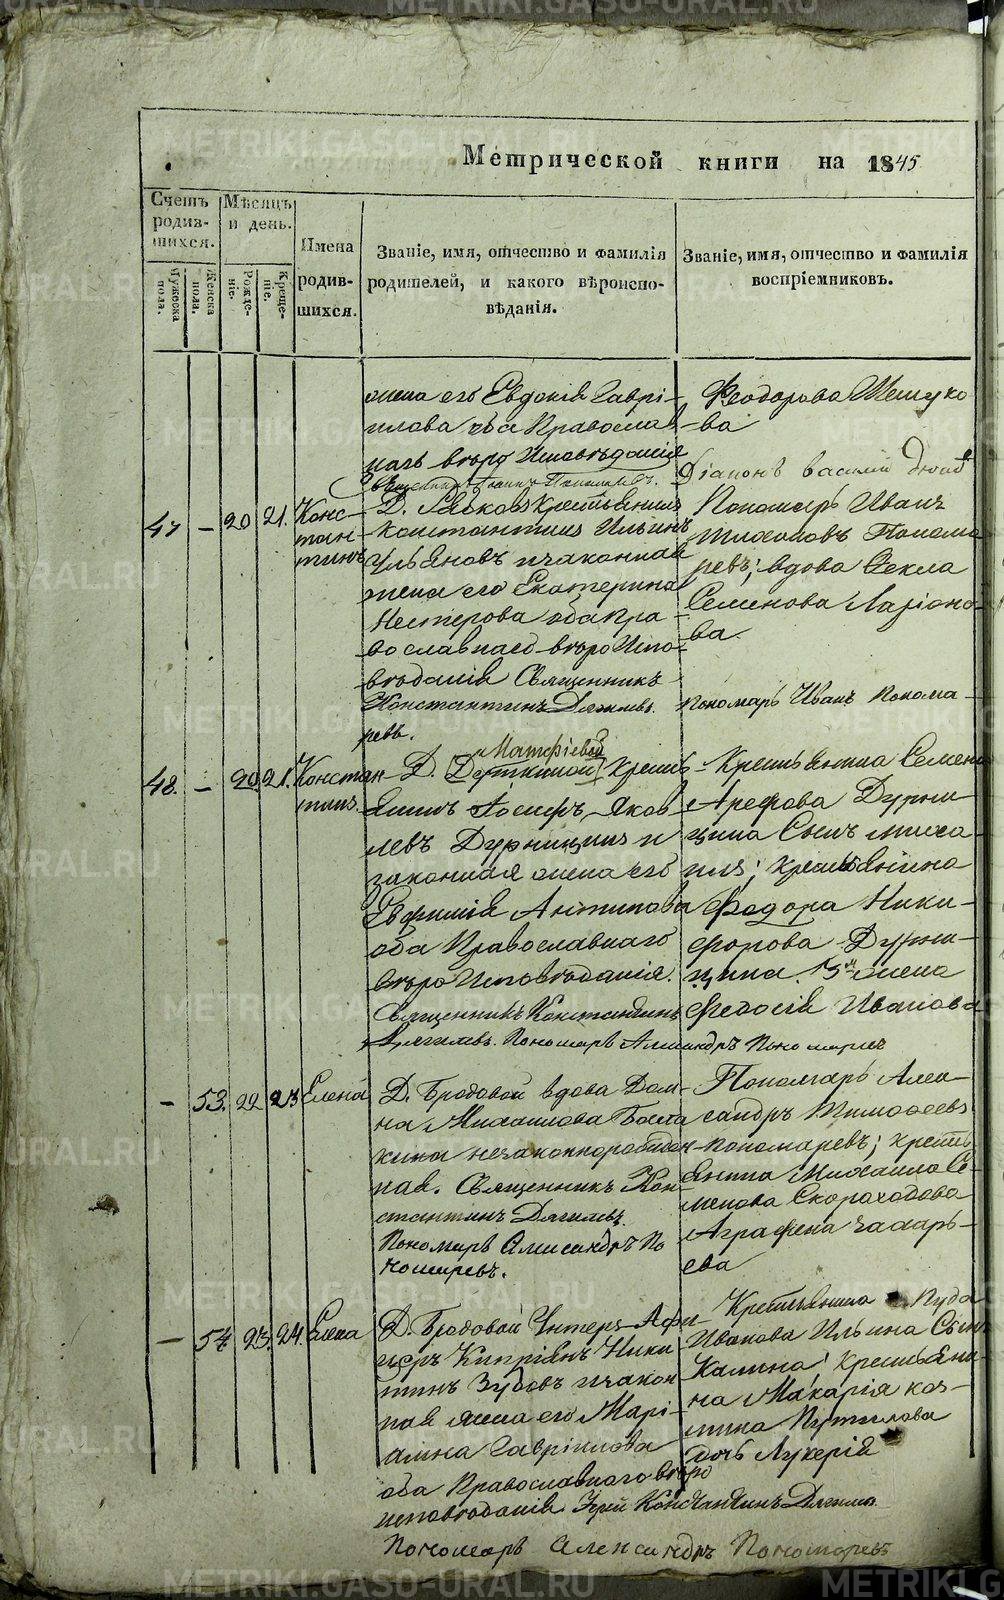 Метрической книги на 1845
Счетъ родив-шихся.
Мужеска пола.
Женска пола.
Мѣсяцъ и день.
Рожде-ніе.
Креще-ніе.
Имена родив-шихся.
Званіе, имя, отчество и фамилія родителей, и какого вѣроиспо-вѣданія.
Званіе, имя, отчество и фамилія воспріемниковъ.
жена его Евдокія Гаврі-
илова оба Православ
наго вѣро Исповѣданія
Феодорова
ва
Діаконъ Василій
47 — 20 21. Конс-
тан-
тинъ
Д. Крестьянинъ
Константинъ Ильинъ
Ульяновъ и законная
жена его Екатерина
Нестерова оба Пра-
вославнаго вѣро Испо-
вѣданія Священникъ
Константинъ Дягилевъ.
Пономарь Иванъ Понома-
ревъ.
Пономарь Иванъ
Понома
ревъ; вдова Фекла
Семенова Ларіоно-
ва.
48. — 20 21. Констан
тинъ.
Матфіевой
Д. Крестья-
янинъ Іосифъ Яков-
левъ Дурницинъ и
законная жена его
Евфимія Антипова
оба Православнаго
вѣро Исповѣданія.
Священникъ Константинъ
Дягилевъ. Пономарь Александръ Пономаревъ
Крестьянина Семена
Арефова Дурни-
цина Сынъ Миха-
илъ; крестьянина
Федора Ники-
форова Дурни-
цина жена
Федосія Иванова
— 53. 22 23 Елена
Д. Бродовой вдова Дом-
на Михаилова
кина незаконнорожден-
ная. Священникъ Кон-
стантинъ Дягилевъ.
Пономарь Александръ По
номаревъ.
Пономарь Алек-
сандръ Тимофеевъ
Пономаревъ; кресть-
янина Михаила Се-
менова Скороходова
Аграфена Захарь-
ева
— 54 23. 24. Елена
Д. Бродовой Унтеръ-Офи-
церъ Кипріянъ Ники-
тинъ Зубовъ и закон-
ная жена его Марі-
амна Гавріилова
оба Православнаго вѣро
исповѣданія Іерей Константинъ Дягилевъ
Пономарь Александръ Пономаревъ
Крестьянина Пуда
Иванова Ильина Сынъ
Калина; крестьяни-
на Макарія Коз-
мина Путилова
дочь Лукерія
METRIKI.GASO-URAL.RU